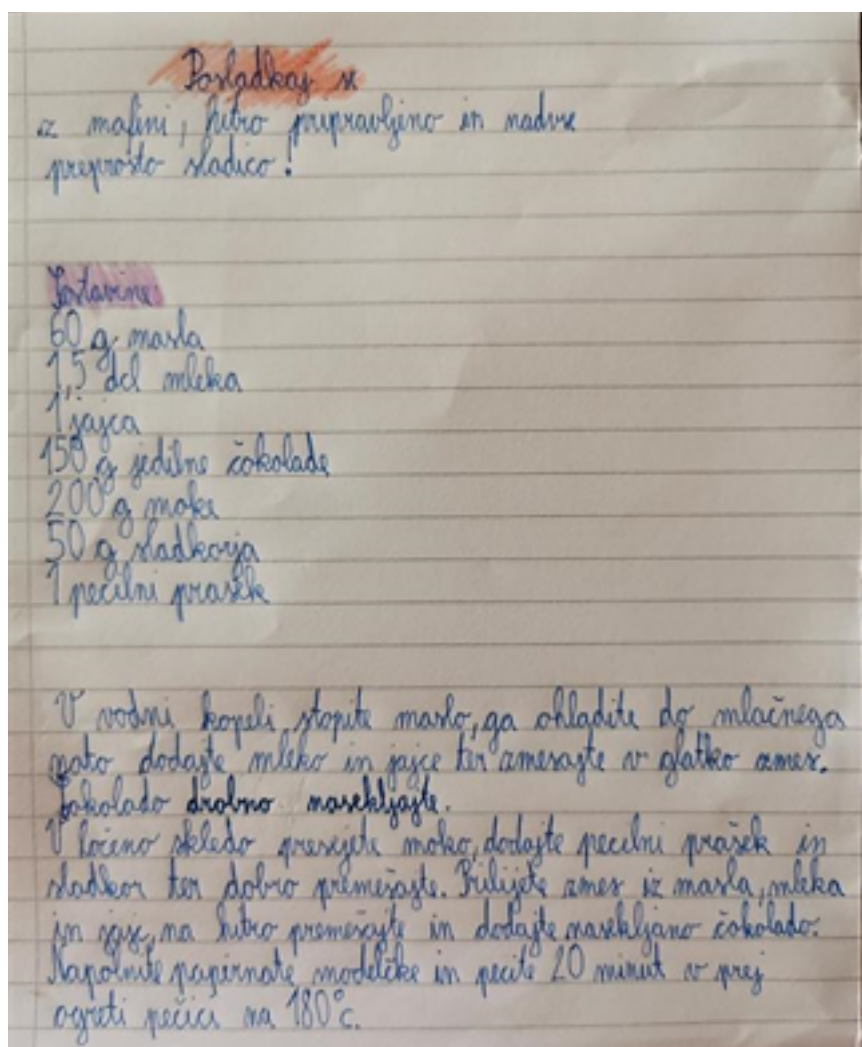 Posladkaj se
iz mafini, hitro pripravljeno in nadvse
preprosto sladico!
Sestavine:
60 g masla
1,5 dcl mleka
1 jajca
150 g jedilne čokolade
200 g moke
50 g sladkorja
1 pecilni prašek
V vodni kopeli stopite maslo, ga ohladite do mlačnega
nato dodajte mleko in jajce ter zmesajte v glatko zmes.
Čokolado drobno nasekljajte.
V ločeno skledo presejete moko, dodajte pecilni prašek in
sladkor ter dobro premešajte. Prilijete zmes iz masla, mleka
in jajc, na hitro premešajte in dodajte nasekljano čokolado.
Napolnite papirnate modelčke in pecite 20 minut v prej
ogreti pečici na 180°c.